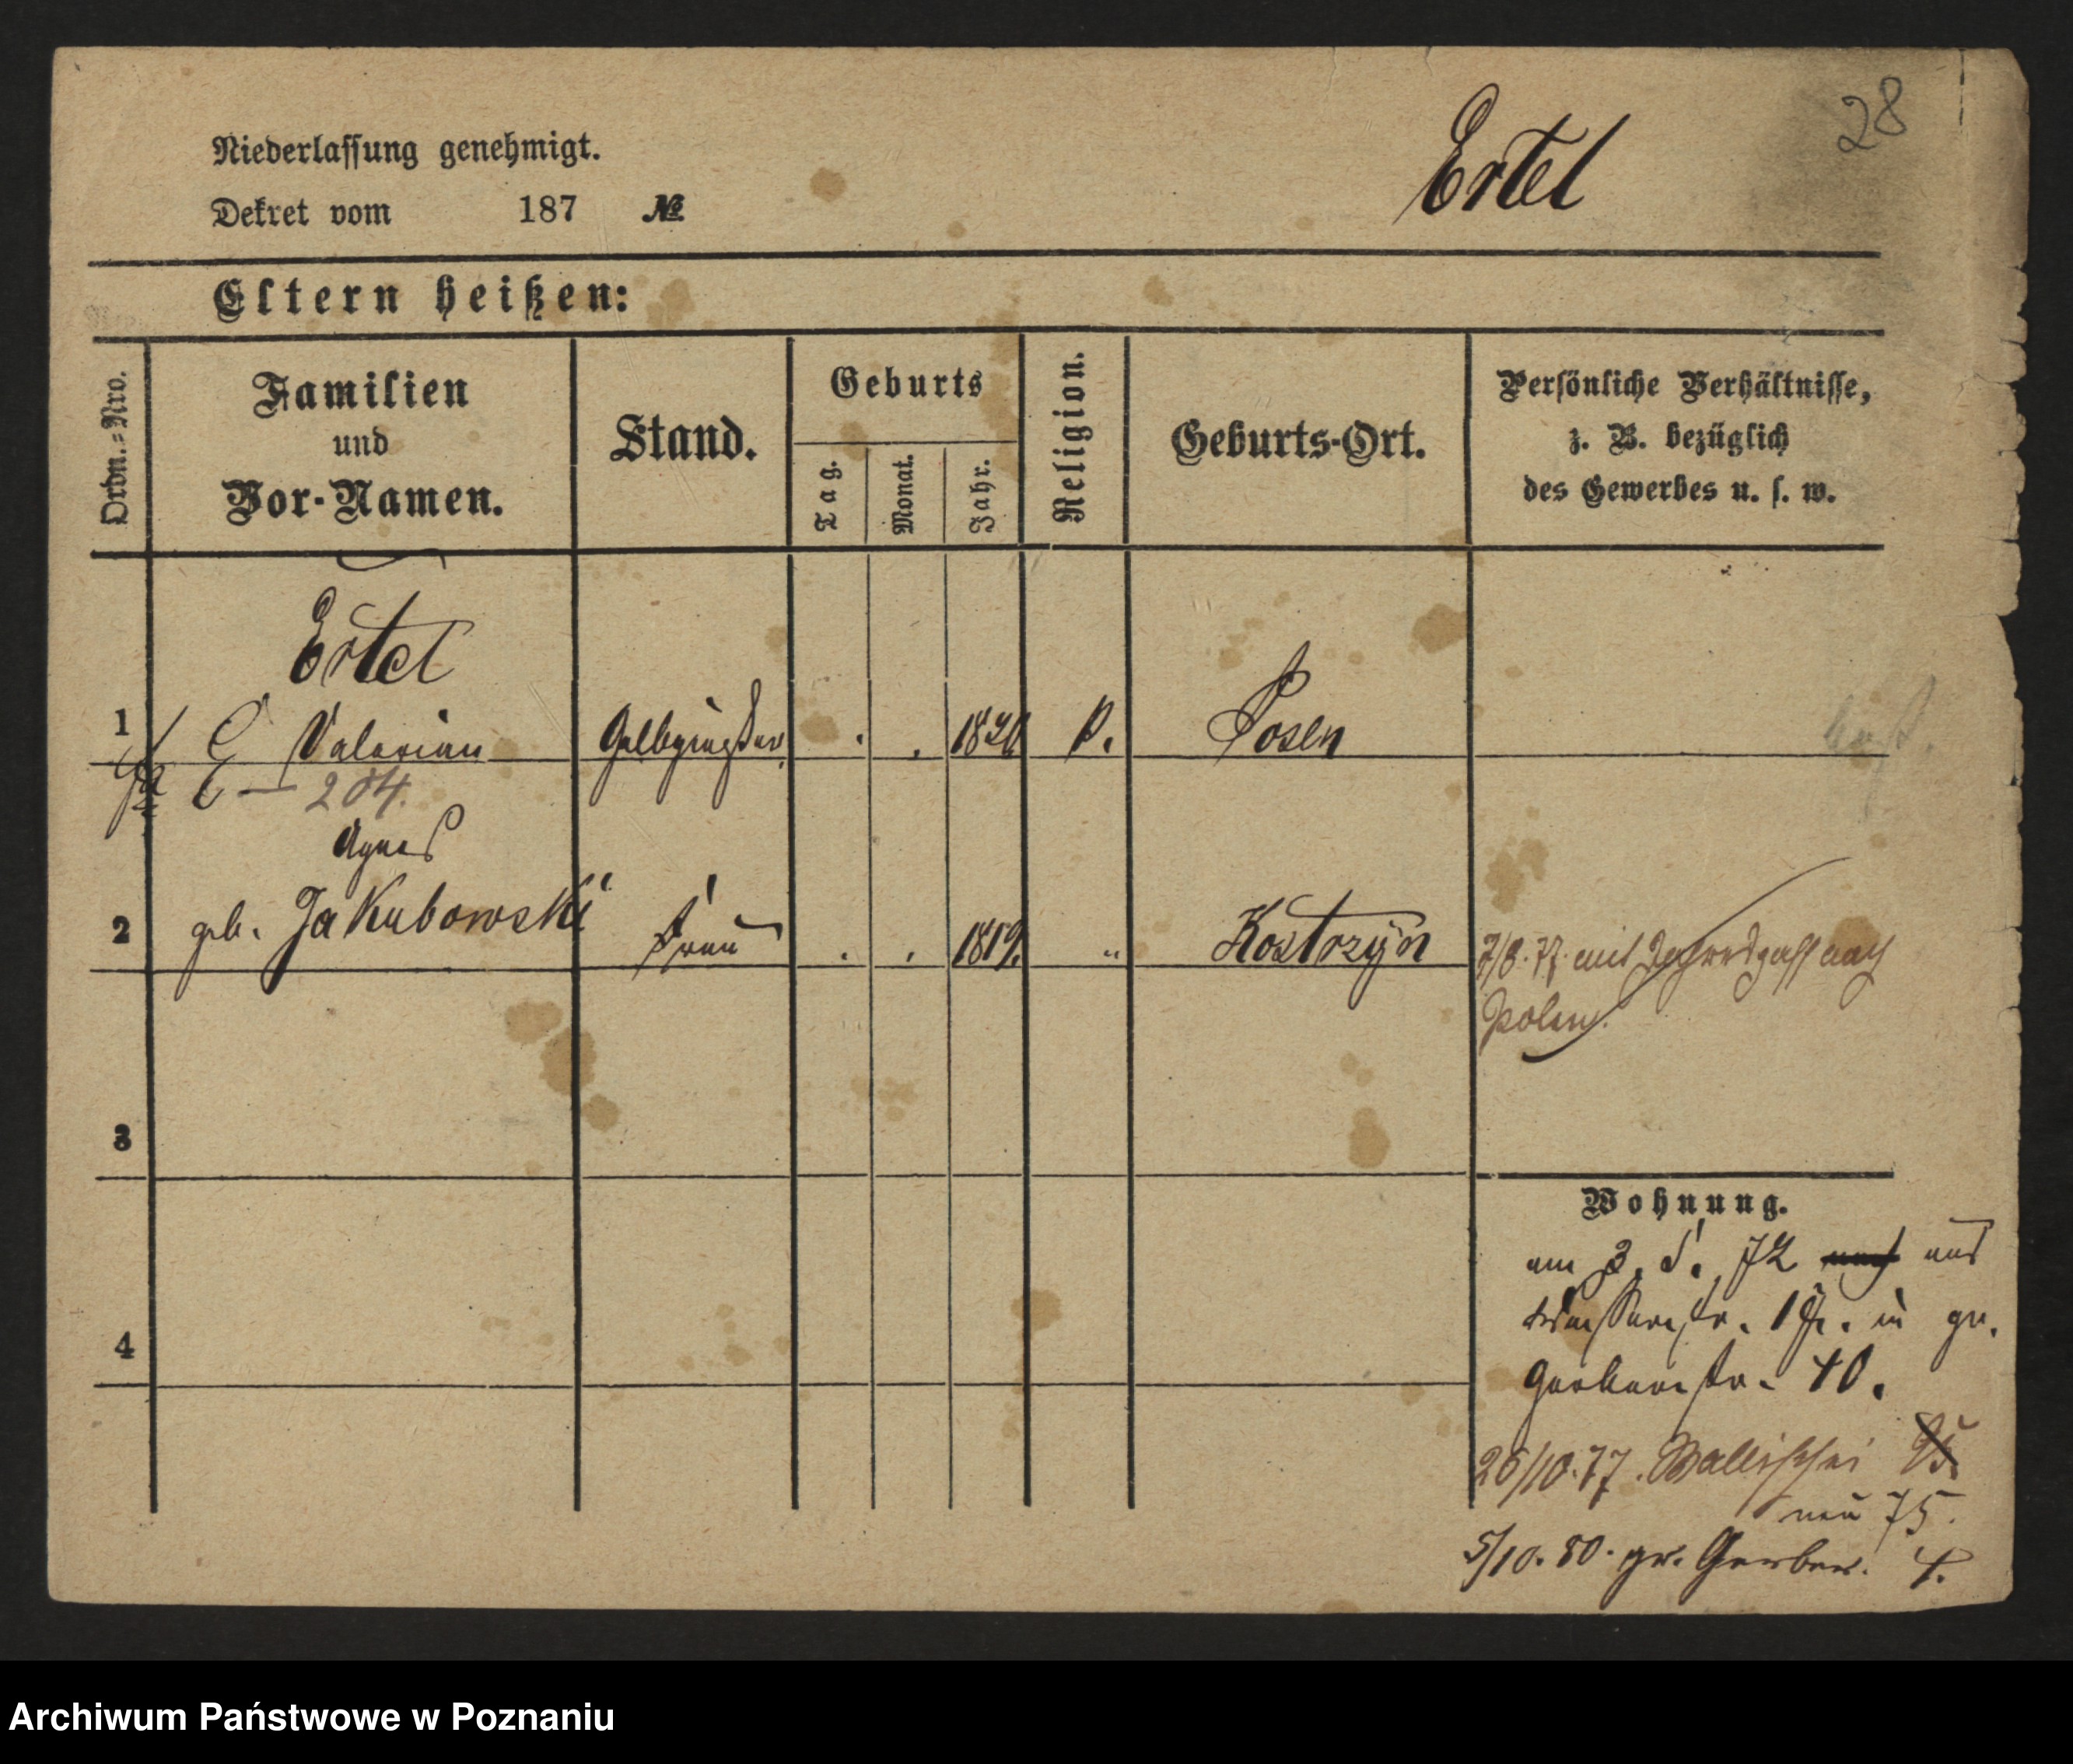 28
Ertel
Niederlassung genehmigt.
Dekret vom 187 №
Eltern heißen:
Ordn.-Nro.
Familien
und
Vor-Namen.
Stand.
Geburts
Tag.
Monat.
Jahr.
Religion.
Geburts-Ort.
Persönliche Verhältnisse,
z. B. bezüglich
des Gewerbes u. s. w.
Ertel
1 Valerian Gelbgießer P. Posen
E — 204.
Agnes
2 geb. Jakubowski Frau 1819. " Kostrzyn
mit nach
Polen.
3
Wohnung.
am 3. 5. 72 nach aus
in gr.
Gerberstr. 40.
4
26/10.77. Wallischei 95.
neu 75.
5/10.80. gr. Gerber. 4.
Archiwum Państwowe w Poznaniu